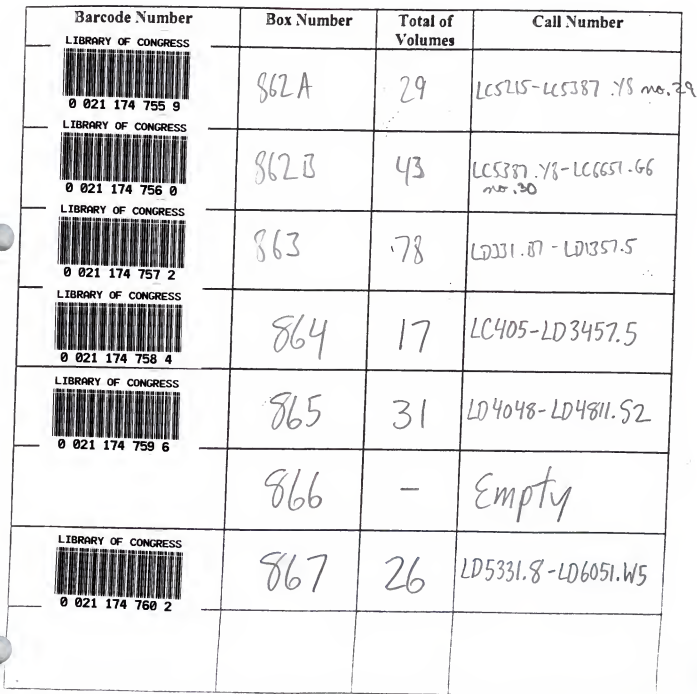 Barcode Number Box Number Total of Volumes Call Number
LIBRARY OF CONGRESS
0 021 174 755 9
862A 29 LC5215-LC5387 .Y8 no.29
LIBRARY OF CONGRESS
0 021 174 756 0
862B 43 LC5387.Y8-LC6651.G6
no.30
LIBRARY OF CONGRESS
0 021 174 757 2
863 78 LD331.87-LD1357.5
LIBRARY OF CONGRESS
0 021 174 758 4
864 17 LC405-LD3457.5
LIBRARY OF CONGRESS
0 021 174 759 6
865 31 LD4048-LD4811.S2
866 - Empty
LIBRARY OF CONGRESS
0 021 174 760 2
867 26 LD5331.8-LD6051.W5